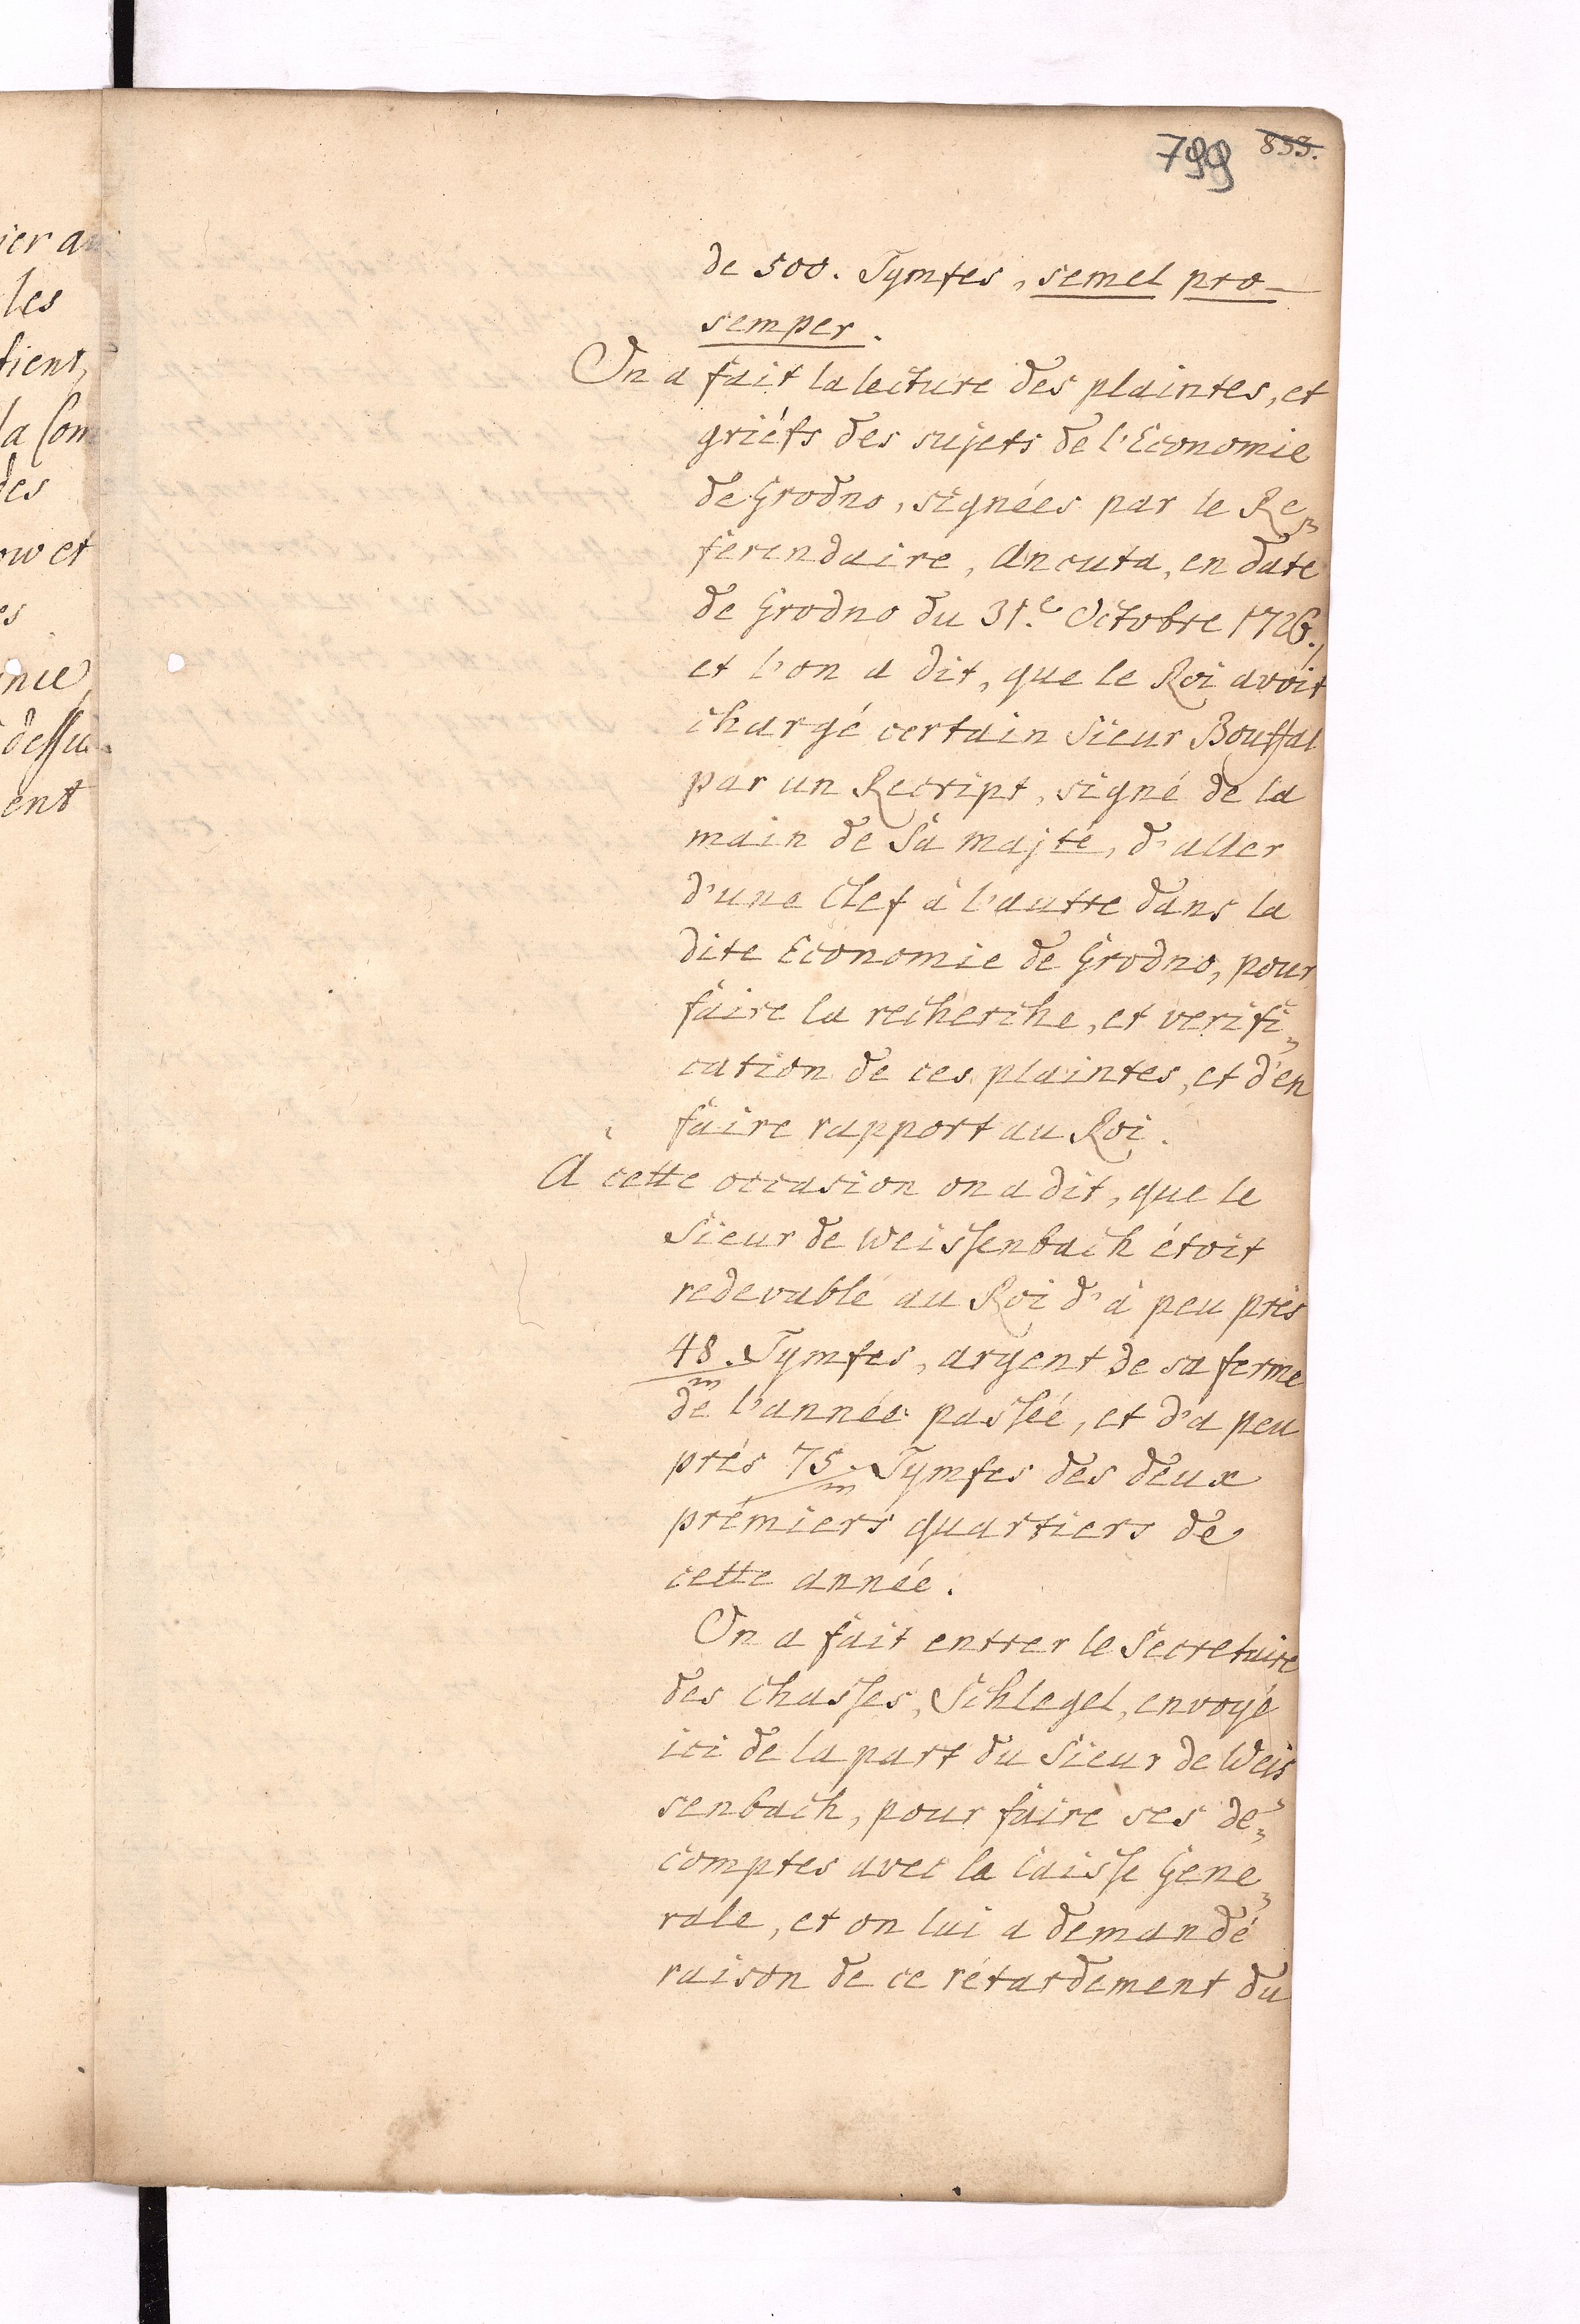 ier au
les
tient,
la Com
des
ow et
es
nce,
dessu
ent
799 833.
de 500. Tymfes, semel pro-
semper.
On a fait la lecture des plaintes, et
griéfs des sujets de l'Economie
de Grodno, signées par le Re„
ferendaire, Ancuta, en date
de Grodno du 31.e Octobre 1726.,
et l'on a dit, que le Roi avoit
chargé certain Sieur Bouffal
par un Rescript, signé de la
main de Sa Majté, d'aller
d'une Clef à l'autre dans la
dite Economie de Grodno, pour
faire la recherche, et verifi„
cation de ces plaintes, et d'en
faire rapport au Roi.
A cette occasion on a dit, que le
Sieur de Weissenbach étoit
redevable au Roi d'à peu près
48. Tymfes, argent de sa ferme
m
de l'année passée, et d'a peu
prés 75. Tymfes des deux
m
prémiers quartiers de
cette année.
On a fait entrer le Secretaire
des Chasses, Schlegel, envoyé
ici de la part du Sieur de Weis
senbach, pour faire ses dé„
comptes avec la Caisse Gene„
rale, et on lui a demandé
raison de ce rétardement du